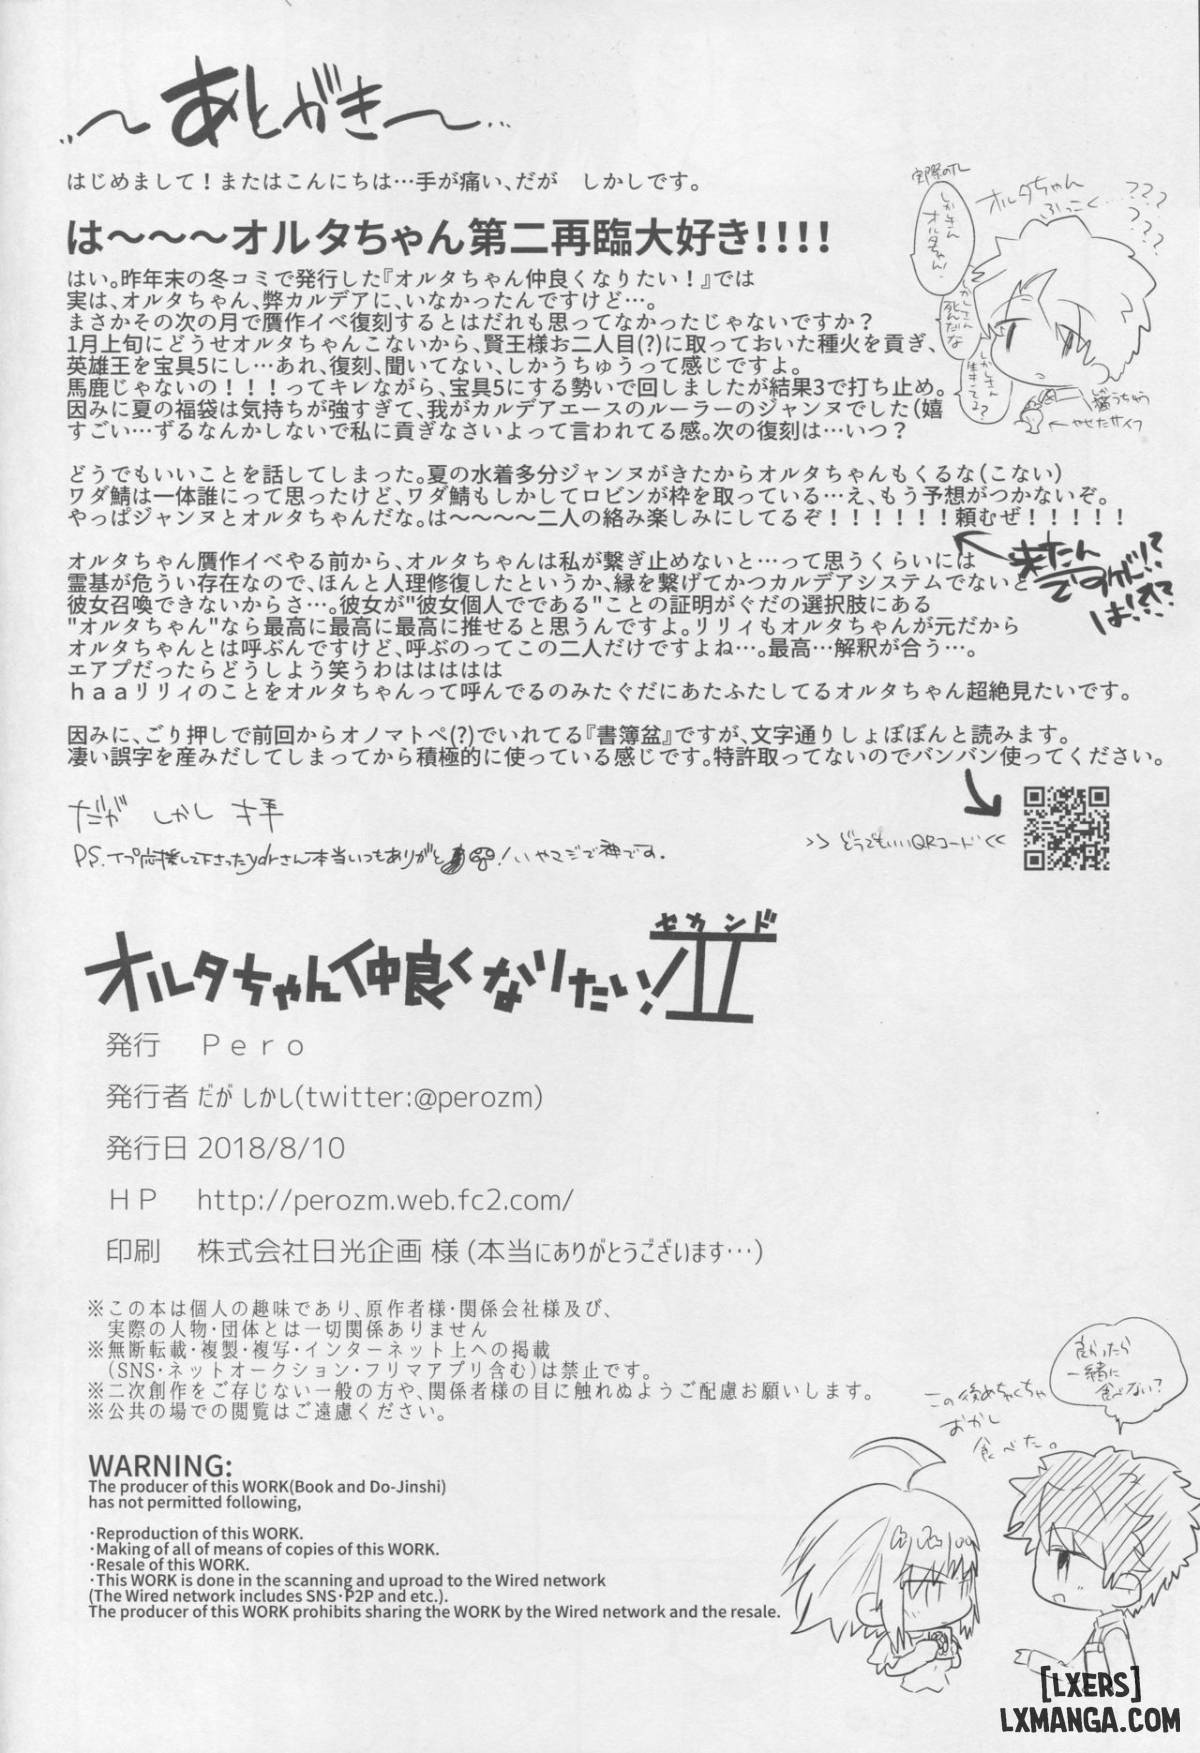 ～あとがき～
はじめまして！またはこんにちは…手が痛い、だが　しかしです。
は～～～オルタちゃん第二再臨大好き！！！！
はい。昨年末の冬コミで発行した『オルタちゃん仲良くなりたい！』では
実は、オルタちゃん、弊カルデアに、いなかったんですけど…。
まさかその次の月で贋作イベ復刻するとはだれも思ってなかったじゃないですか？
1月上旬にどうせオルタちゃんこないから、賢王様お二人目(?)に取っておいた種火を貢ぎ、
英雄王を宝具5にし…あれ、復刻、聞いてない、しかうちゅうって感じですよ。
馬鹿じゃないの！！！ってキレながら、宝具5にする勢いで回しましたが結果3で打ち止め。
因みに夏の福袋は気持ちが強すぎて、我がカルデアエースのルーラーのジャンヌでした(嬉
すごい…ずるなんかしないで私に貢ぎなさいよって言われてる感。次の復刻は…いつ？
どうでもいいことを話してしまった。夏の水着多分ジャンヌがきたからオルタちゃんもくるな(こない)
ワダ鯖は一体誰にって思ったけど、ワダ鯖もしかしてロビンが枠を取っている…え、もう予想がつかないぞ。
やっぱジャンヌとオルタちゃんだな。は～～～～二人の絡み楽しみにしてるぞ！！！！！！頼むぜ！！！！！
オルタちゃん贋作イベやる前から、オルタちゃんは私が繋ぎ止めないと…って思うくらいには
霊基が危うい存在なので、ほんと人理修復したというか、縁を繋げてかつカルデアシステムでないと
彼女召喚できないからさ…。彼女が"彼女個人でである"ことの証明がぐだの選択肢にある
"オルタちゃん"なら最高に最高に最高に推せると思うんですよ。リリィもオルタちゃんが元だから
オルタちゃんとは呼ぶんですけど、呼ぶのってこの二人だけですよね…。最高…解釈が合う…。
エアプだったらどうしよう笑うわはははははは
ｈａａリリィのことをオルタちゃんって呼んでるのみたぐだにあたふたしてるオルタちゃん超絶見たいです。
因みに、ごり押しで前回からオノマトペ(?)でいれてる『書簿盆』ですが、文字通りしょぼぼんと読みます。
凄い誤字を産みだしてしまってから積極的に使っている感じです。特許取ってないのでバンバン使ってください。
だが しかし 拝
>> どうでもいいQRコード <<
オルタちゃん仲良くなりたい！II
セカンド
発行　Ｐｅｒｏ
発行者 だが しかし(twitter:@perozm)
発行日 2018/8/10
ＨＰ　http://perozm.web.fc2.com/
印刷　株式会社日光企画 様 (本当にありがとうございます…)
※この本は個人の趣味であり、原作者様・関係会社様及び、
実際の人物・団体とは一切関係ありません
※無断転載・複製・複写・インターネット上への掲載
(SNS・ネットオークション・フリマアプリ含む)は禁止です。
※二次創作をご存じない一般の方や、関係者様の目に触れぬようご配慮お願いします。
※公共の場での閲覧はご遠慮ください。
良かったら
一緒に
食べない？
この後めちゃくちゃ
おかし
食べた。
WARNING:
The producer of this WORK(Book and Do-Jinshi)
has not permitted following,
・Reproduction of this WORK.
・Making of all of means of copies of this WORK.
・Resale of this WORK.
・This WORK is done in the scanning and uproad to the Wired network
(The Wired network includes SNS・P2P and etc.).
The producer of this WORK prohibits sharing the WORK by the Wired network and the resale.
[LXERS]
LXMANGA.COM